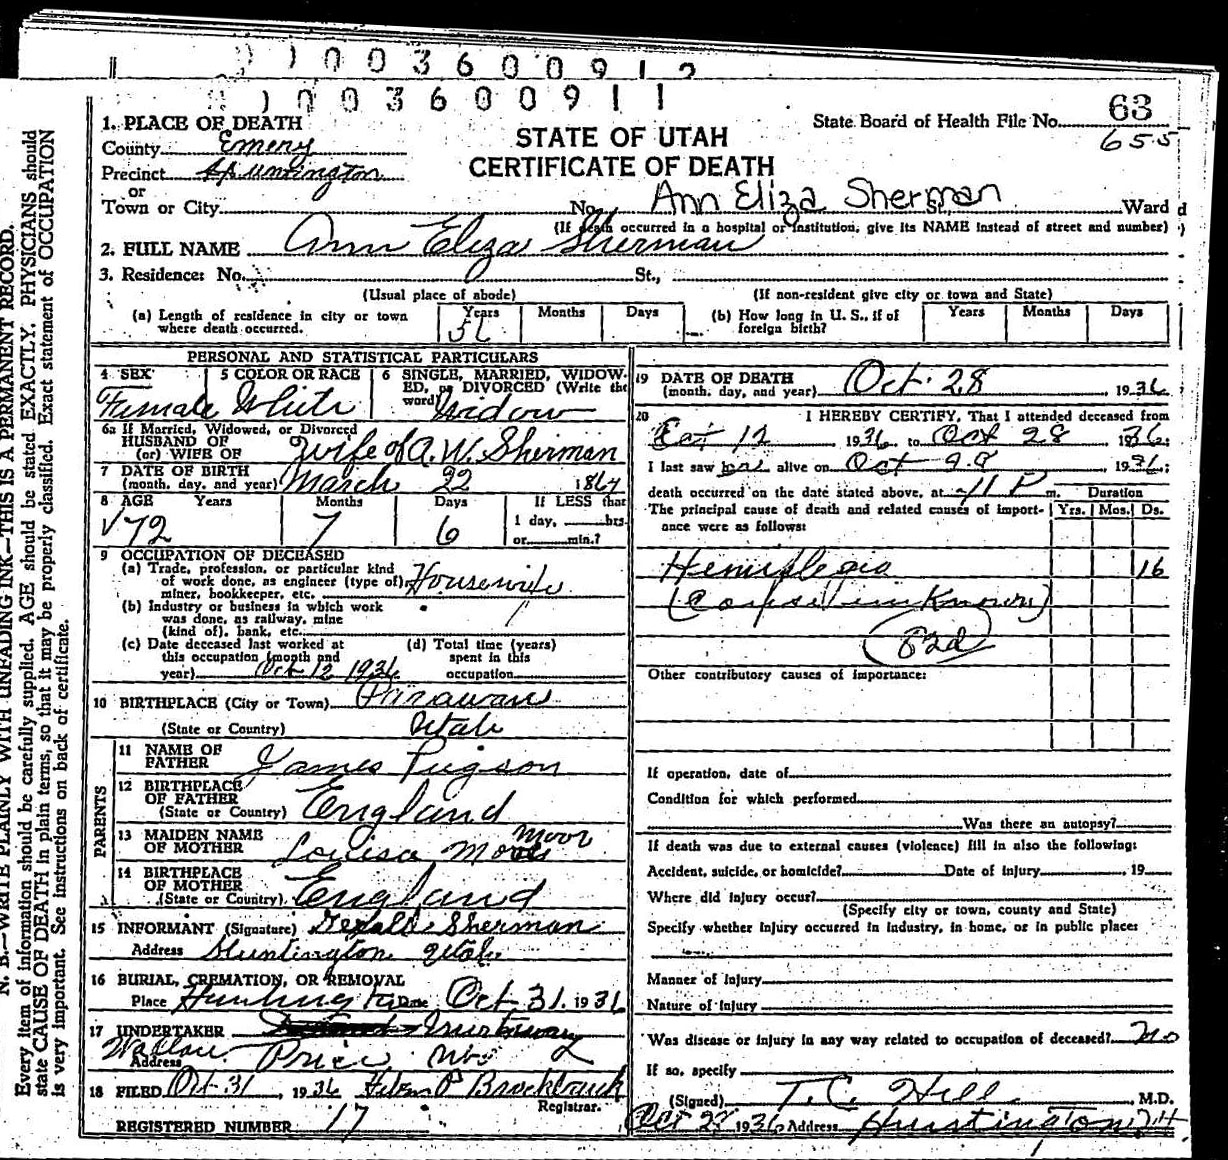 1003600912
1003600911
63
655
State Board of Health File No.
STATE OF UTAH
CERTIFICATE OF DEATH
1. PLACE OF DEATH
County Emery
Precinct Huntington
or
Town or City No. Ann Eliza Sherman St., Ward
(If death occurred in a hospital or institution, give its NAME instead of street and number)
2. FULL NAME Ann Eliza Sherman
3. Residence: No. St.,
(Usual place of abode) (If non-resident give city or town and State)
(a) Length of residence in city or town where death occurred. Years Months Days
(b) How long in U. S., if of foreign birth? Years Months Days
PERSONAL AND STATISTICAL PARTICULARS
4 SEX Female
5 COLOR OR RACE White
6 SINGLE, MARRIED, WIDOWED, or DIVORCED (Write the word) Widow
6a If Married, Widowed, or Divorced
HUSBAND OF
(or) WIFE OF wife of A. W. Sherman
7 DATE OF BIRTH
(month, day, and year) March 22 1864
8 AGE Years Months Days If LESS than
72 7 6 1 day, hrs.
or min.?
9 OCCUPATION OF DECEASED
(a) Trade, profession, or particular kind
of work done, as engineer (type of), Housewife
miner, bookkeeper, etc.
(b) Industry or business in which work
was done, as railway, mine
(kind of), bank, etc.
(c) Date deceased last worked at
this occupation (month and
year) Oct 12 1936
(d) Total time (years)
spent in this
occupation
10 BIRTHPLACE (City or Town) Parawan
(State or Country) Utah
PARENTS
11 NAME OF
FATHER James Pugson
12 BIRTHPLACE
OF FATHER England
(State or Country)
13 MAIDEN NAME Moor
OF MOTHER Louisa
14 BIRTHPLACE
OF MOTHER England
(State or Country)
15 INFORMANT (Signature) Gerald Sherman
Address Huntington Utah
16 BURIAL, CREMATION, OR REMOVAL
Place Huntington Date Oct 31. 1936
17 UNDERTAKER
Wallace
Address Price
18 FILED Oct 31, 1936 P Brockbank
Registrar.
REGISTERED NUMBER 17
19 DATE OF DEATH
(month, day, and year) Oct. 28 1936
20 I HEREBY CERTIFY, That I attended deceased from
Oct 12 1936 to Oct 28 1936;
I last saw her alive on Oct 28, 1936;
death occurred on the date stated above, at 11 P m. Duration
The principal cause of death and related causes of importance were as follows: Yrs. Mos. Ds.
Hemiplegia 16
(Cause unknown)
82d
Other contributory causes of importance:
If operation, date of
Condition for which performed
Was there an autopsy?
If death was due to external causes (violence) fill in also the following:
Accident, suicide, or homicide? Date of injury , 19
Where did injury occur?
(Specify city or town, county and State)
Specify whether injury occurred in industry, in home, or in public place:
Manner of injury
Nature of injury
Was disease or injury in any way related to occupation of deceased? no
If so, specify
(Signed) T. C. Hill, M.D.
Oct 1936 Address Huntington, Ut
N. B.—WRITE PLAINLY WITH UNFADING INK—THIS IS A PERMANENT RECORD.
Every item of information should be carefully supplied. AGE should be stated EXACTLY. PHYSICIANS should
state CAUSE OF DEATH in plain terms, so that it may be properly classified. Exact statement of OCCUPATION
is very important. See instructions on back of certificate.